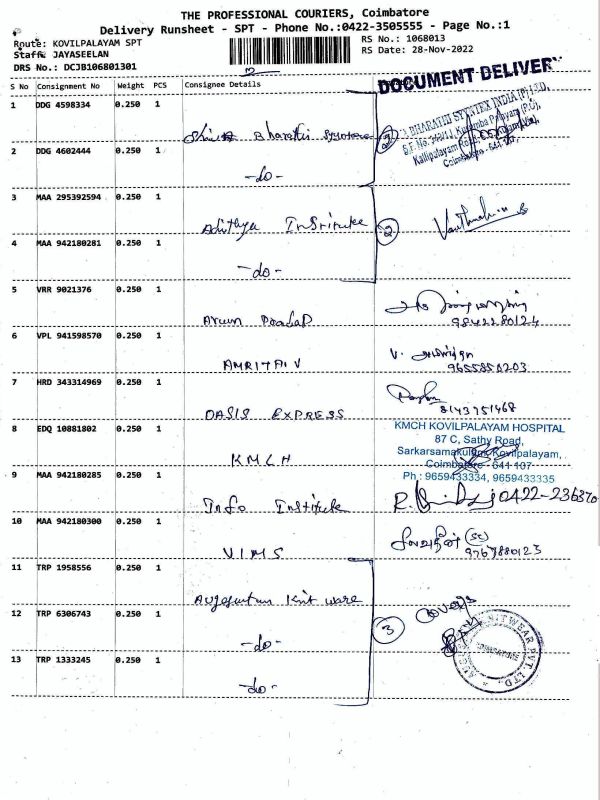 THE PROFESSIONAL COURIERS, Coimbatore
Delivery Runsheet - SPT - Phone No.:0422-3505555 - Page No.:1
Route: KOVILPALAYAM SPT
RS No.: 1068013
Staff: JAYASEELAN
RS Date: 28-Nov-2022
DRS No.: DCJB106801301
DOCUMENT DELIVERY
S No Consignment No Weight PCS Consignee Details
1 DDG 4598334 0.250 1
Bharathi
BHARATHI SYNTEX INDIA (P) LTD,
Coimbatore - 641 107
2 DDG 4602444 0.250 1
-do-
3 MAA 295392594 0.250 1
Adithya 2
4 MAA 942180281 0.250 1
-do-
5 VRR 9021376 0.250 1
Arun
9842280124
6 VPL 941598570 0.250 1
AMRITA.V V.
9655850203
7 HRD 343314969 0.250 1
OASIS EXPRESS 8143751468
8 EDQ 10881802 0.250 1
KMCH KOVILPALAYAM HOSPITAL
87 C, Sathy Road,
Sarkarsamakulam, Kovilpalayam,
Coimbatore - 641 107
Ph : 9659433334, 9659433335
KMCH
9 MAA 942180285 0.250 1
Info Institute 0422-236370
10 MAA 942180300 0.250 1
VIMS 9767880123
11 TRP 1958556 0.250 1
Knit ware
12 TRP 6306743 0.250 1
-do- 3
13 TRP 1333245 0.250 1
-do-